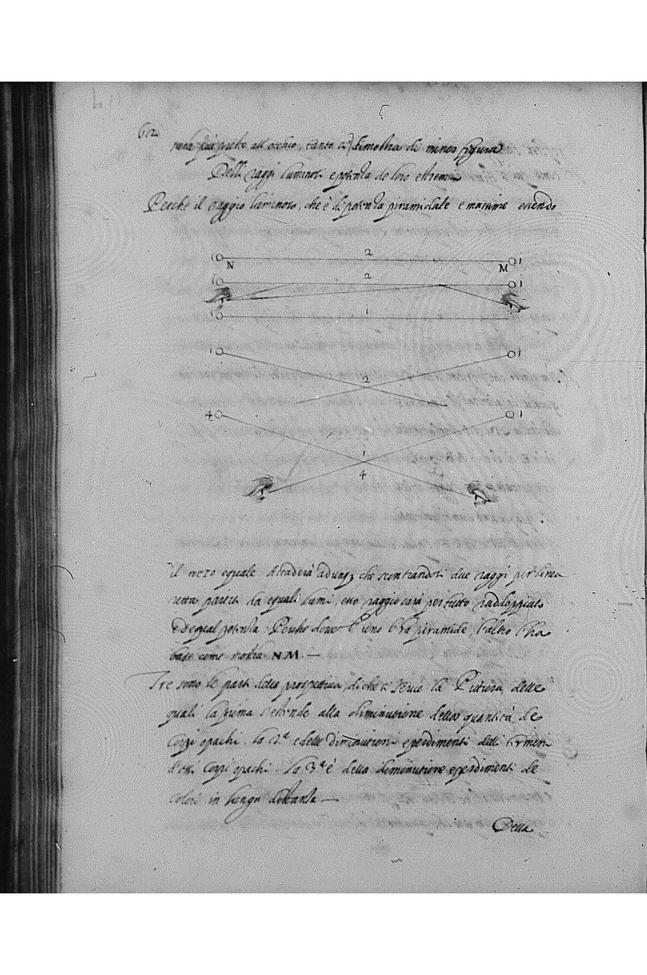 62
sara piu presso all'occhio, tanto si dimostra di minor figura
Delli raggi luminosi e potentia de loro estremi
Perche il raggio luminoso, che è di potentia piramidale e massime essendo
1 2 1
N M
1 2 1
1 1
1 2 1
4 1
1
4
il mezo equale. Accaderà adunq3 che scontrandosi due raggi per linea
retta partiti da equali lumi, esso raggio sarà per tutto raddoppiato
et d'equal potentia. Perche dove l'uno l'ha piramide, l'altro l'ha
base come mostra NM.—
Tre sono le parti della prospettiva, di che si serve la Pittura, delle
quali la prima s'estende alla diminutione della quantità de
Corpi opachi. la 2.ª è delle diminutioni e perdimenti delli termini
d'essi Corpi opachi. la 3.ª è della diminutione e perdimenti de
colori in longa distantia—
Della